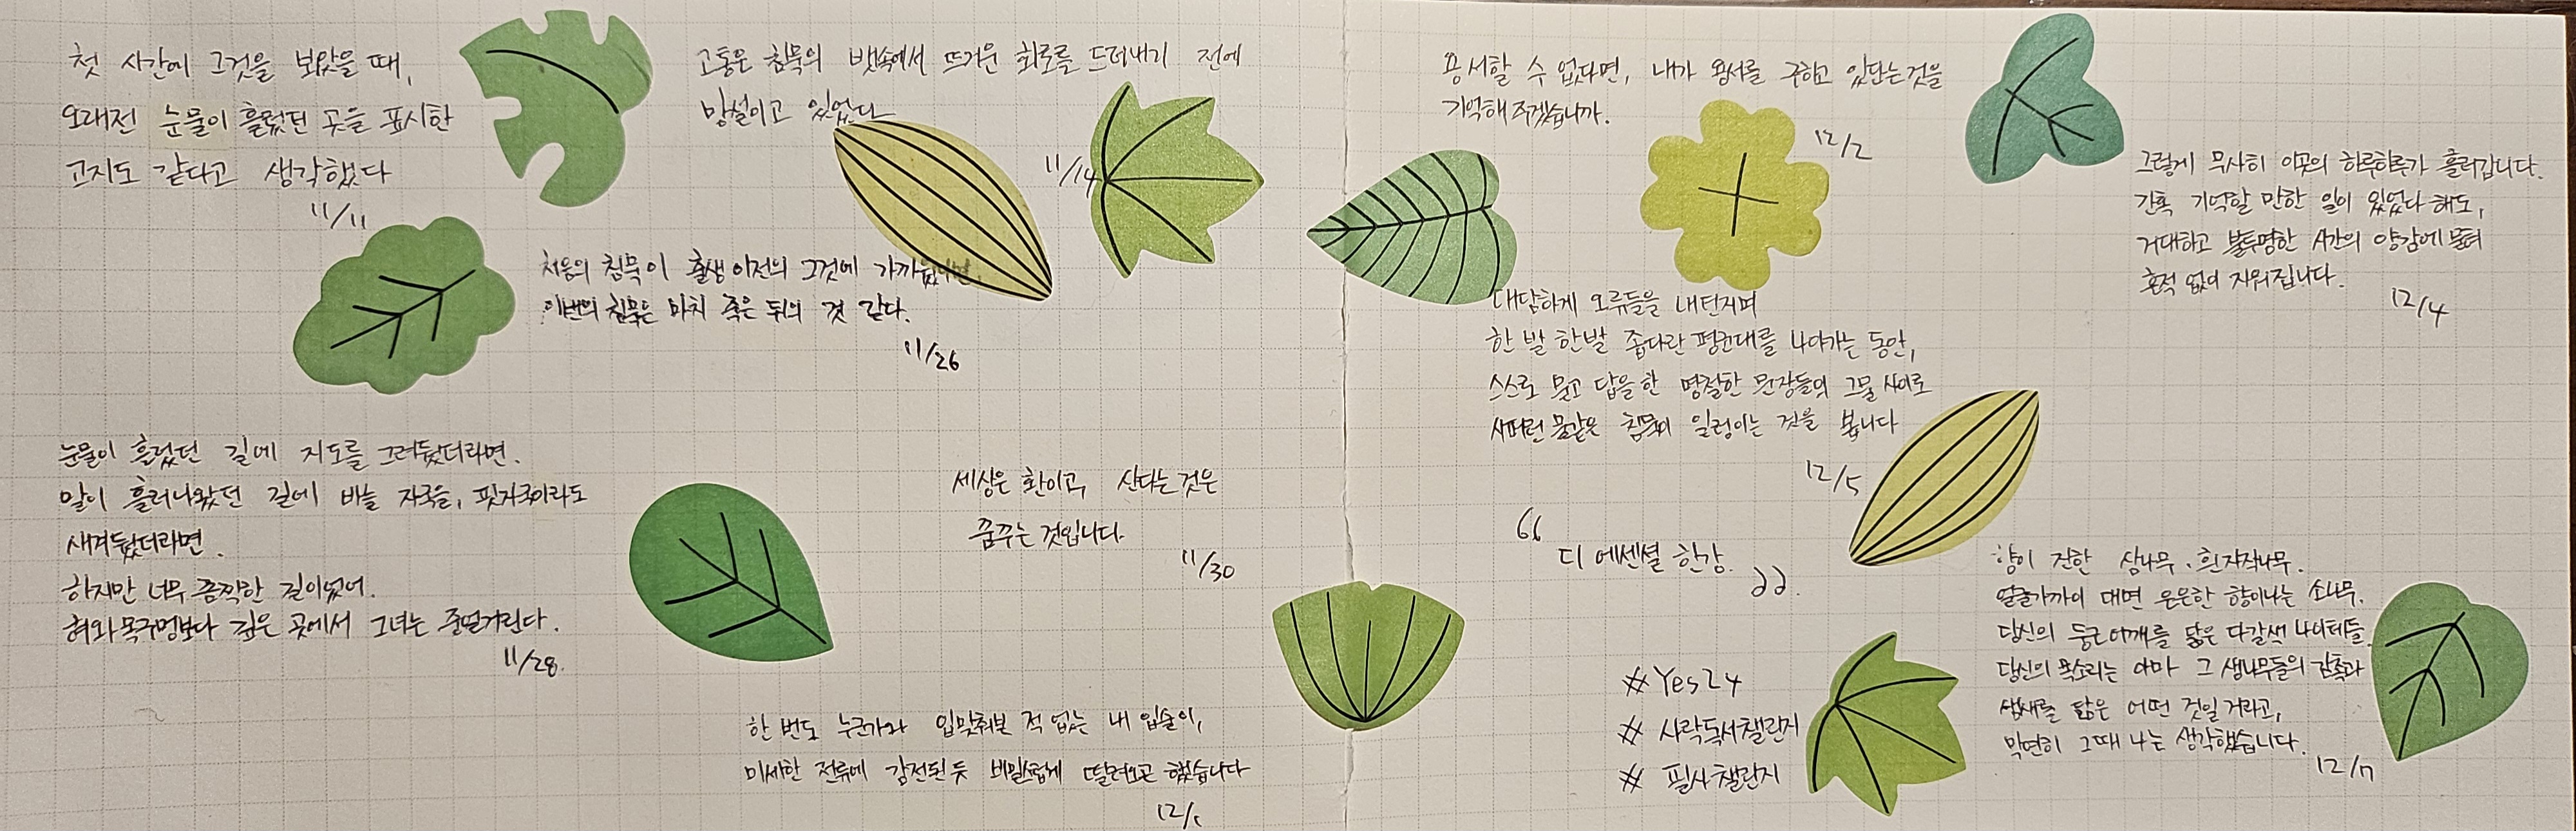 첫 시간에 그것을 보았을 때,
오래전 눈물이 흘렀던 곳을 표시한
고지도 같다고 생각했다
11/11
고통은 침묵의 뱃속에서 뜨거운 회로를 드러내기 전에
망설이고 있었다
11/14
처음의 침묵이 출생 이전의 그것에 가까웠다면,
이번의 침묵은 마치 죽은 뒤의 것 같다.
11/26
눈물이 흘렀던 길에 지도를 그려뒀더라면.
말이 흘러나왔던 길에 바늘 자국을, 핏자국이라도
새겨뒀더라면.
하지만 너무 끔찍한 길이었어.
혀와 목구멍보다 깊은 곳에서 그녀는 중얼거린다.
11/28.
세상은 환이고, 산다는 것은
꿈꾸는 것입니다.
11/30
한 번도 누군가와 입맞춰본 적 없는 내 입술이,
미세한 전류에 감전된 듯 비밀스럽게 떨려오곤 했습니다
12/1
용서할 수 없다면, 내가 용서를 구하고 있단는 것을
기억해 주겠습니까.
12/2
그렇게 무사히 이곳의 하루하루가 흘러갑니다.
간혹 기억할 만한 일이 있었다 해도,
거대하고 불투명한 시간의 양감에 묻혀
흔적 없이 지워집니다.
12/4
대담하게 오류들을 내던지며
한 발 한발 좁다란 평균대를 나아가는 동안,
스스로 묻고 답을한 명철한 문장들의 그물 사이로
시퍼런 물같은 침묵이 일렁이는 것을 봅니다
12/5
“
디 에센셜 한강.
”
향이 진한 삼나무. 흰자작나무.
얼굴가까이 대면 은은한 향이나는 소나무.
당신의 둥근어깨를 닮은 다갈색 나이테들.
당신의 목소리는 아마 그 생나무들의 감촉과
냄새를 닮은 어떤 것일 거라고,
막연히 그때 나는 생각했습니다.
12/7
# Yes24
# 사락독서챌린지
# 필사챌린지